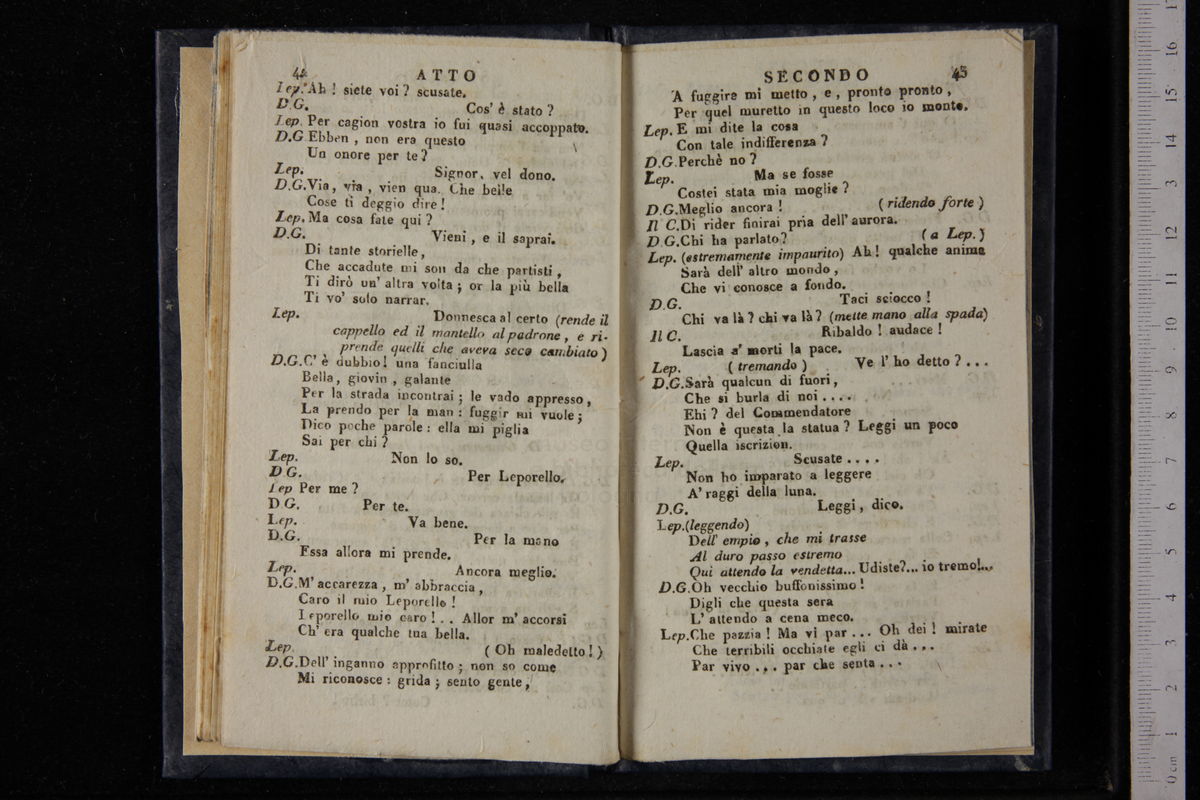 42 ATTO
Lep. Ah ! siete voi ? scusate.
D.G. Cos' è stato ?
Lep. Per cagion vostra io fui quasi accoppato.
D.G Ebben , non era questo
Un onore per te ?
Lep. Signor, vel dono.
D.G. Via, via , vien qua. Che belle
Cose ti deggio dire !
Lep. Ma cosa fate qui ?
D.G. Vieni , e il saprai.
Di tante storielle,
Che accadute mi son da che partisti ,
Ti dirò un' altra volta ; or la più bella
Ti vo' solo narrar.
Lep. Donnesca al certo (rende il
cappello ed il mantello al padrone , e ri-
prende quelli che aveva seco cambiato )
D.G. C' è dubbio! una fanciulla
Bella, giovin , galante
Per la strada incontrai ; le vado appresso,
La prendo per la man : fuggir mi vuole ;
Dico poche parole : ella mi piglia
Sai per chi ?
Lep. Non lo so.
D G. Per Leporello.
Lep Per me ?
D G. Per te.
Lep. Va bene.
D.G. Per la mano
Essa allora mi prende.
Lep. Ancora meglio.
D.G. M' accarezza , m' abbraccia ,
Caro il mio Leporello !
Leporello mio caro ! . . Allor m' accorsi
Ch' era qualche tua bella.
Lep. ( Oh maledetto ! )
D.G. Dell' inganno approfitto ; non so come
Mi riconosce : grida ; sento gente ,
SECONDO 43
A fuggire mi metto , e , pronto pronto ,
Per quel muretto in questo loco io monto.
Lep. E mi dite la cosa
Con tale indifferenza ?
D.G. Perchè no ?
Lep. Ma se fosse
Costei stata mia moglie ?
D.G. Meglio ancora ! ( ridendo forte )
Il C. Di rider finirai pria dell' aurora.
D.G. Chi ha parlato? ( a Lep. )
Lep. (estremamente impaurito) Ah ! qualche anima
Sarà dell' altro mondo ,
Che vi conosce a fondo.
D.G. Taci sciocco !
Chi va là ? chi va là ? (mette mano alla spada)
Il C. Ribaldo ! audace !
Lascia a' morti la pace.
Lep. ( tremando ) Ve l' ho detto ? . . .
D.G. Sarà qualcun di fuori ,
Che si burla di noi . . . .
Ehi ? del Commendatore
Non è questa la statua ? Leggi un poco
Quella iscrizion.
Lep. Scusate . . . .
Non ho imparato a leggere
A' raggi della luna.
D.G. Leggi , dico.
Lep. (leggendo)
Dell' empio , che mi trasse
Al duro passo estremo
Qui attendo la vendetta... Udiste?... io tremo!...
D.G. Oh vecchio buffonissimo !
Digli che questa sera
L' attendo a cena meco.
Lep. Che pazzia ! Ma vi par . . . Oh dei ! mirate
Che terribili occhiate egli ci dà . . .
Par vivo . . . par che senta . . .